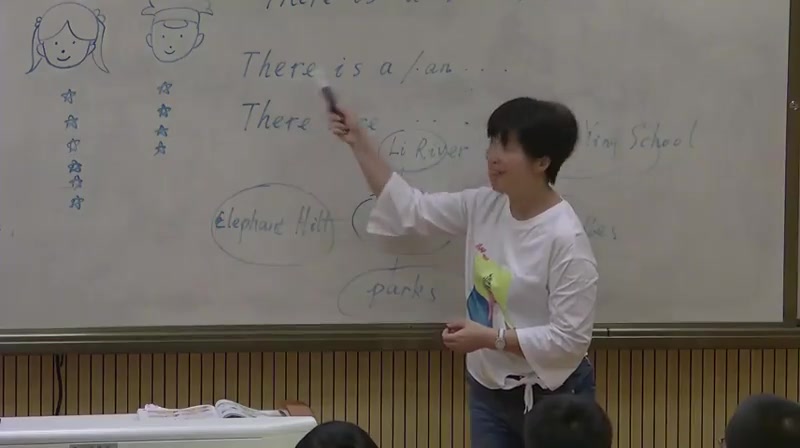 There is a
There is a / an ...
There are ...
Li River
School
Elephant Hill
parks